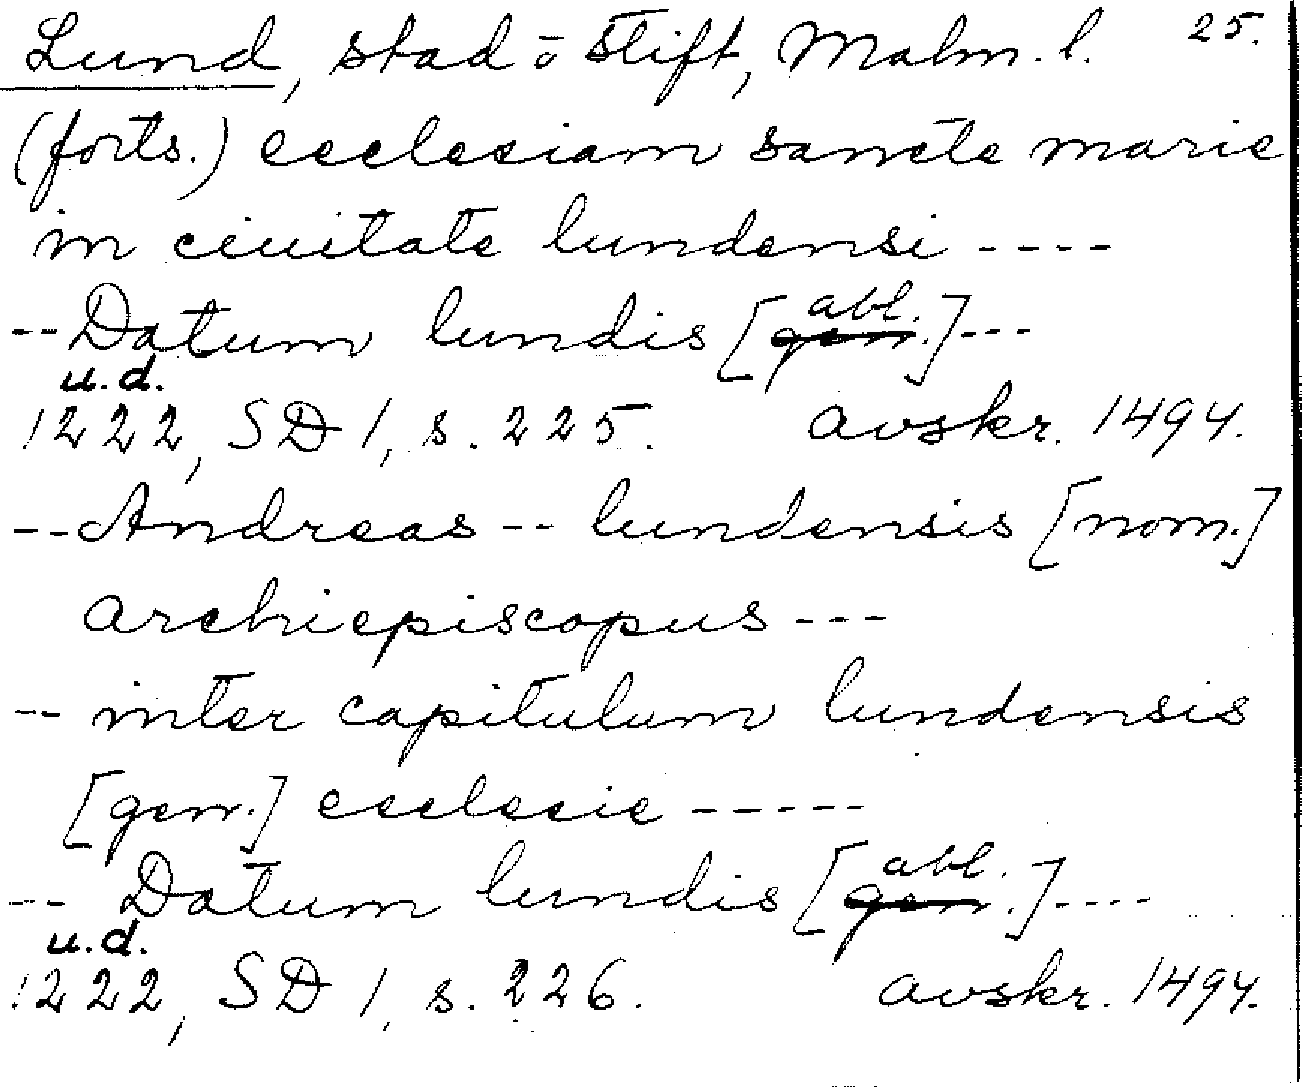 Lund, stad o stift, Malm. l. 25.
(forts.) ecclesiam sancte marie
in ciuitate lundensi ----
-- Datum lundis [gen. abl.] ---
u.d.
1222, SD 1, s. 225. avskr. 1494.
-- Andreas -- lundensis [nom.]
archiepiscopus ---
-- inter capitulum lundensis
[gen.] ecclesie -----
-- Datum lundis [gen. abl.] ----
u.d.
1222, SD 1, s. 226. avskr. 1494.